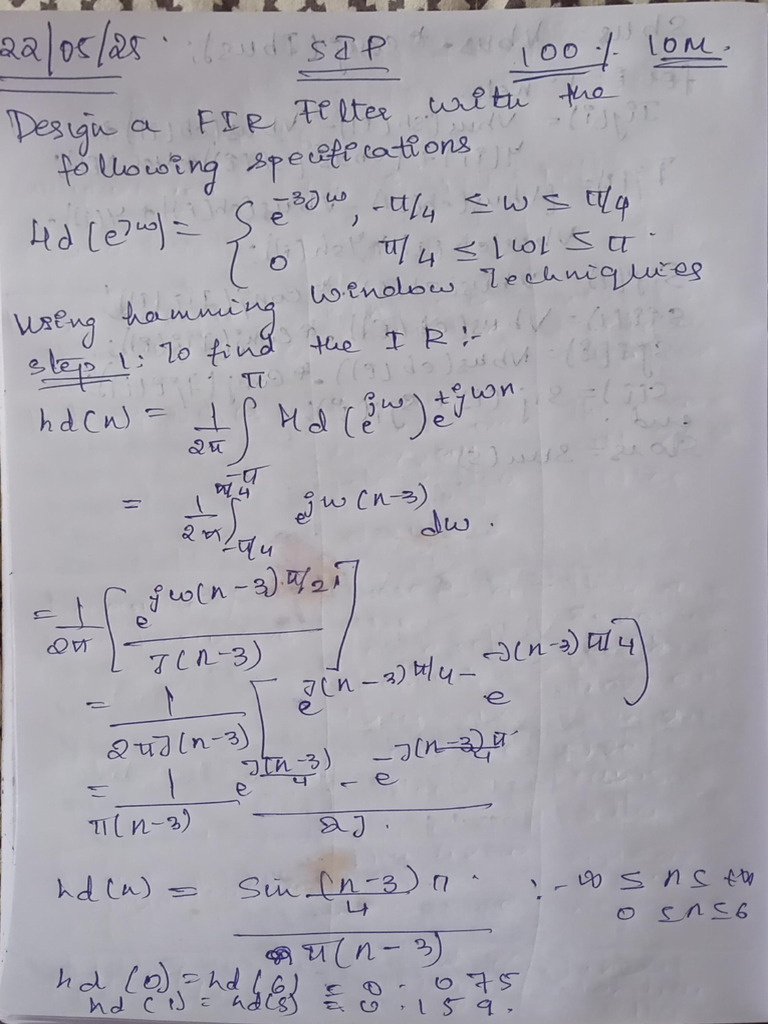 22/05/25 SIP 100% 10M.
Design a FIR Filter with the
following specifications
Hd(e^jω) = { e^-3jω, -π/4 ≤ ω ≤ π/4
0 π/4 ≤ |ω| ≤ π.
Using hamming window Techniques
Step 1: To find the IR:-
hd(n) = 1/2π ∫_-π^π Hd(e^jω) e^+jωn
= 1/2π ∫_-π/4^π/4 e^jω(n-3) dω.
= 1/2π [ e^jω(n-3)π/2 / J(n-3) ]
= 1/2πJ(n-3) [ e^J(n-3)π/4 - e^-J(n-3)π/4 ]
= 1/π(n-3) e^J(n-3)/4 - e^-J(n-3)π/4 / 2J.
hd(n) = Sin (n-3)π/4 / π(n-3) : -∞ ≤ n ≤
0 ≤ n ≤ 6
hd(0) = hd(6) = 0.075
hd(1) = hd(5) = 0.159.